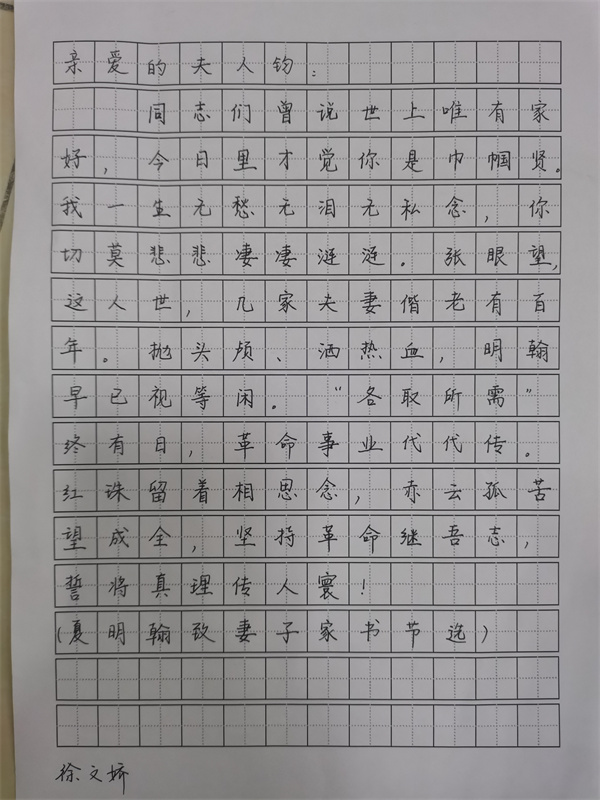 亲爱的夫人钧：
同志们曾说世上唯有家
好，今日里才觉你是巾帼贤。
我一生无愁无泪无私念，你
切莫悲悲凄凄涟涟。张眼望，
这人世，几家夫妻偕老有百
年。抛头颅、洒热血，明翰
早已视等闲。"各取所需"
终有日，革命事业代代传。
红珠留着相思念，赤云孤苦
望成全，坚持革命继吾志，
誓将真理传人寰！
（夏明翰致妻子家书节选）
徐文娇